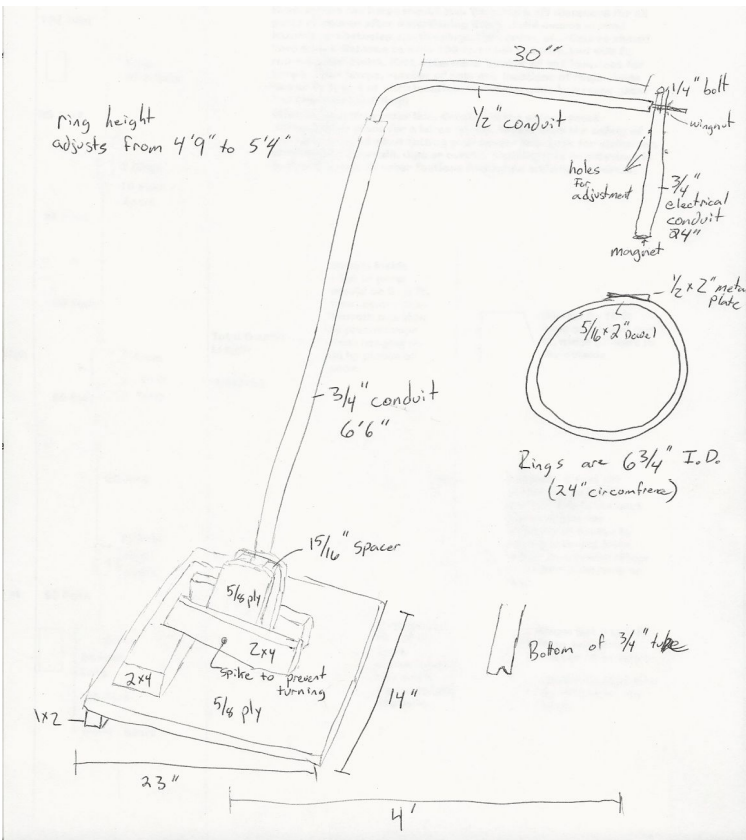 30"
1/4" bolt
1/2" conduit
wingnut
ring height
adjusts from 4'9" to 5'4"
holes
for
adjustment
3/4"
electrical
conduit
24"
magnet
1/2 x 2" meta
plate
5/16 x 2" Dowel
3/4" conduit
6'6"
Rings are 6 3/4" I.D.
(24" circumfrence)
15/16" spacer
5/8 ply
2x4
spike to prevent
turning
2x4
5/8 ply
1x2
14"
Bottom of 3/4" tube
23"
4'